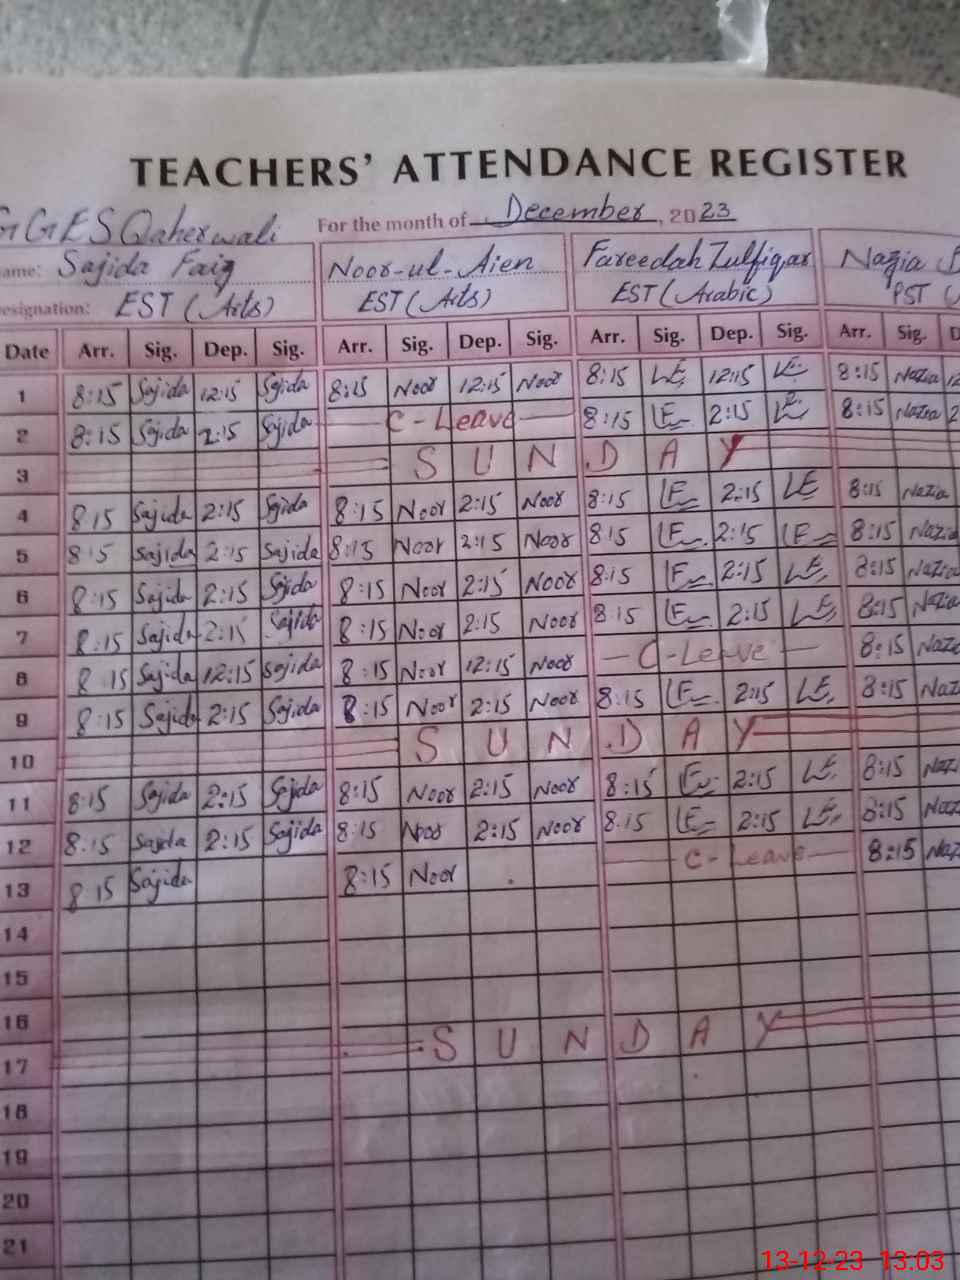 TEACHERS' ATTENDANCE REGISTER
GGES Qaherwali For the month of December, 2023
ame: Sajida Faiz Noor-ul-Aien Fareedah Zulfiqar Nazia
esignation: EST (Arts) EST (Arts) EST (Arabic) PST
Date Arr. Sig. Dep. Sig. Arr. Sig. Dep. Sig. Arr. Sig. Dep. Sig. Arr. Sig. D
1 8:15 Sajida 12:15 Sajida 8:15 Noor 12:15 Noor 8:15 LE 12:15 LE 8:15 Nazia 12
2 8:15 Sajida 2:15 Sajida C-Leave 8:15 LE 2:15 LE 8:15 Nazia 2
3 SUNDAY
4 8:15 Sajida 2:15 Sajida 8:15 Noor 2:15 Noor 8:15 LE 2:15 LE 8:15 Nazia
5 8:15 Sajida 2:15 Sajida 8:15 Noor 2:15 Noor 8:15 LE 2:15 LE 8:15 Nazia
6 8:15 Sajida 2:15 Sajida 8:15 Noor 2:15 Noor 8:15 LE 2:15 LE 8:15 Nazia
7 8:15 Sajida 2:15 Sajida 8:15 Noor 2:15 Noor 8:15 LE 2:15 LE 8:15 Nazia
8 8:15 Sajida 12:15 Sajida 8:15 Noor 12:15 Noor C-Leave 8:15 Naz
9 8:15 Sajida 2:15 Sajida 8:15 Noor 2:15 Noor 8:15 LE 2:15 LE 8:15 Naz
10 SUNDAY
11 8:15 Sajida 2:15 Sajida 8:15 Noor 2:15 Noor 8:15 LE 2:15 LE 8:15 Naz
12 8:15 Sajida 2:15 Sajida 8:15 Noor 2:15 Noor 8:15 LE 2:15 LE 8:15 Naz
13 8:15 Sajida 8:15 Noor C-Leave 8:15 Naz
14
15
16
17 SUNDAY
18
19
20
21
13-12-23 13:03